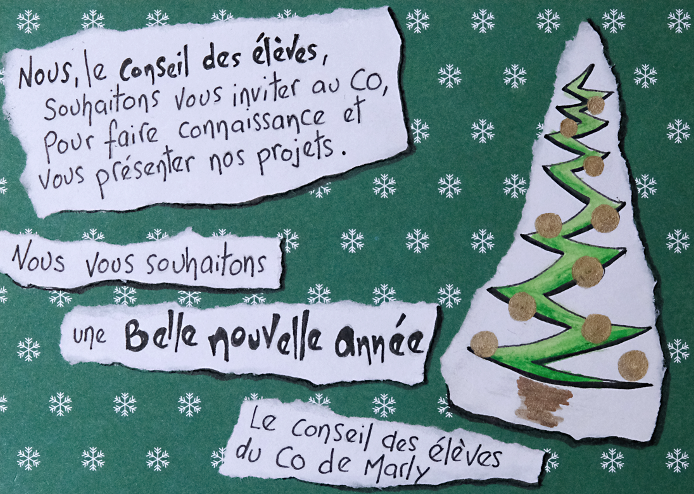 Nous, le conseil des élèves,
souhaitons vous inviter au CO,
pour faire connaissance et
vous présenter nos projets.
Nous vous souhaitons
une Belle nouvelle année
Le conseil des élèves
du CO de Marly